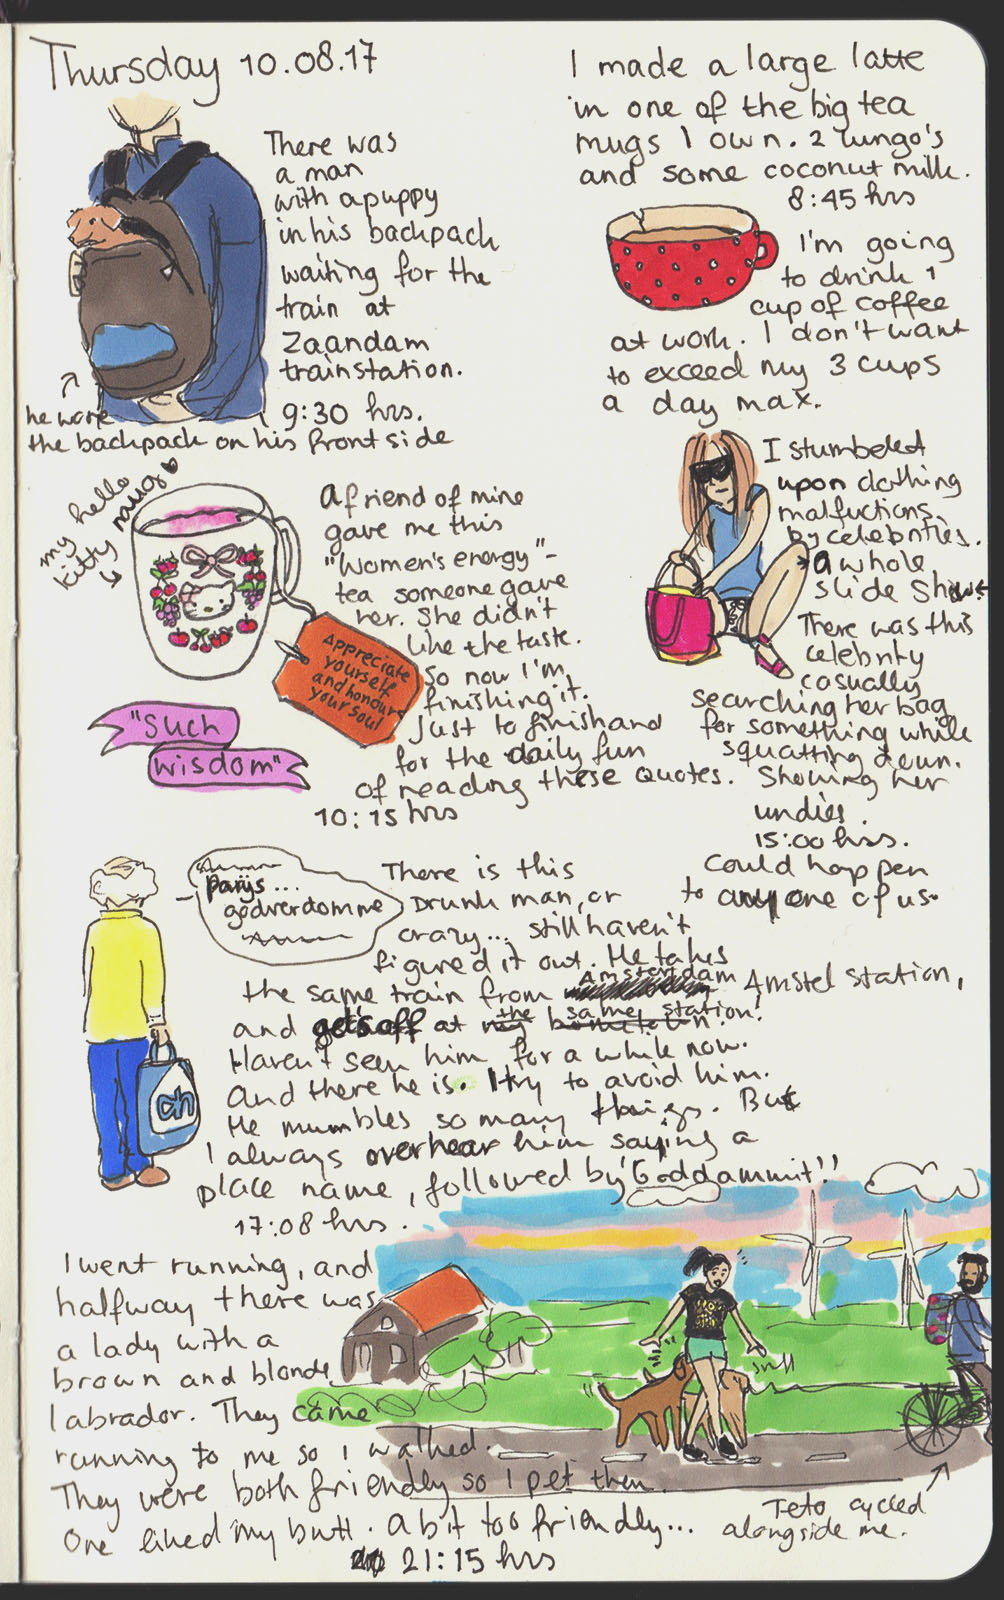 Thursday 10.08.17
There was
a man
with a puppy
in his backpack
waiting for the
train at
Zaandam
trainstation.
9:30 hrs.
he wore
the backpack on his front side
I made a large latte
in one of the big tea
mugs I own. 2 lungo's
and some coconut milk.
8:45 hrs
I'm going
to drink 1
cup of coffee
at work. I don't want
to exceed my 3 cups
a day max.
my hello
kitty mug
a friend of mine
gave me this
"Women's energy"-
tea someone gave
her. She didn't
like the taste.
So now I'm
finishing it.
Just to finish and
for the daily fun
of reading these quotes.
10:15 hrs
Appreciate
yourself
and honour
your soul
"Such
wisdom"
I stumbeled
upon clothing
malfuctions
by celebrities.
a whole
slide show
There was this
celebrity
casually
searching her bag
for something while
squatting down.
Showing her
undies.
15:00 hrs.
Could happen
to anyone of us.
parijs...
godverdomme
There is this
Drunk man, or
crazy... still haven't
figured it out. He takes
the same train from Amstel station,
and gets off at the same station!
Haven't seen him for a while now.
And there he is. I try to avoid him.
He mumbles so many things. But
I always overhear him saying a
place name, followed by "Goddammit!!
17:08 hrs.
ah
I went running, and
halfway there was
a lady with a
brown and blonde
labrador. They came
running to me so I walked.
They were both friendly so I pet them.
One liked my butt. a bit too friendly...
21:15 hrs
sniff
Teto cycled
alongside me.